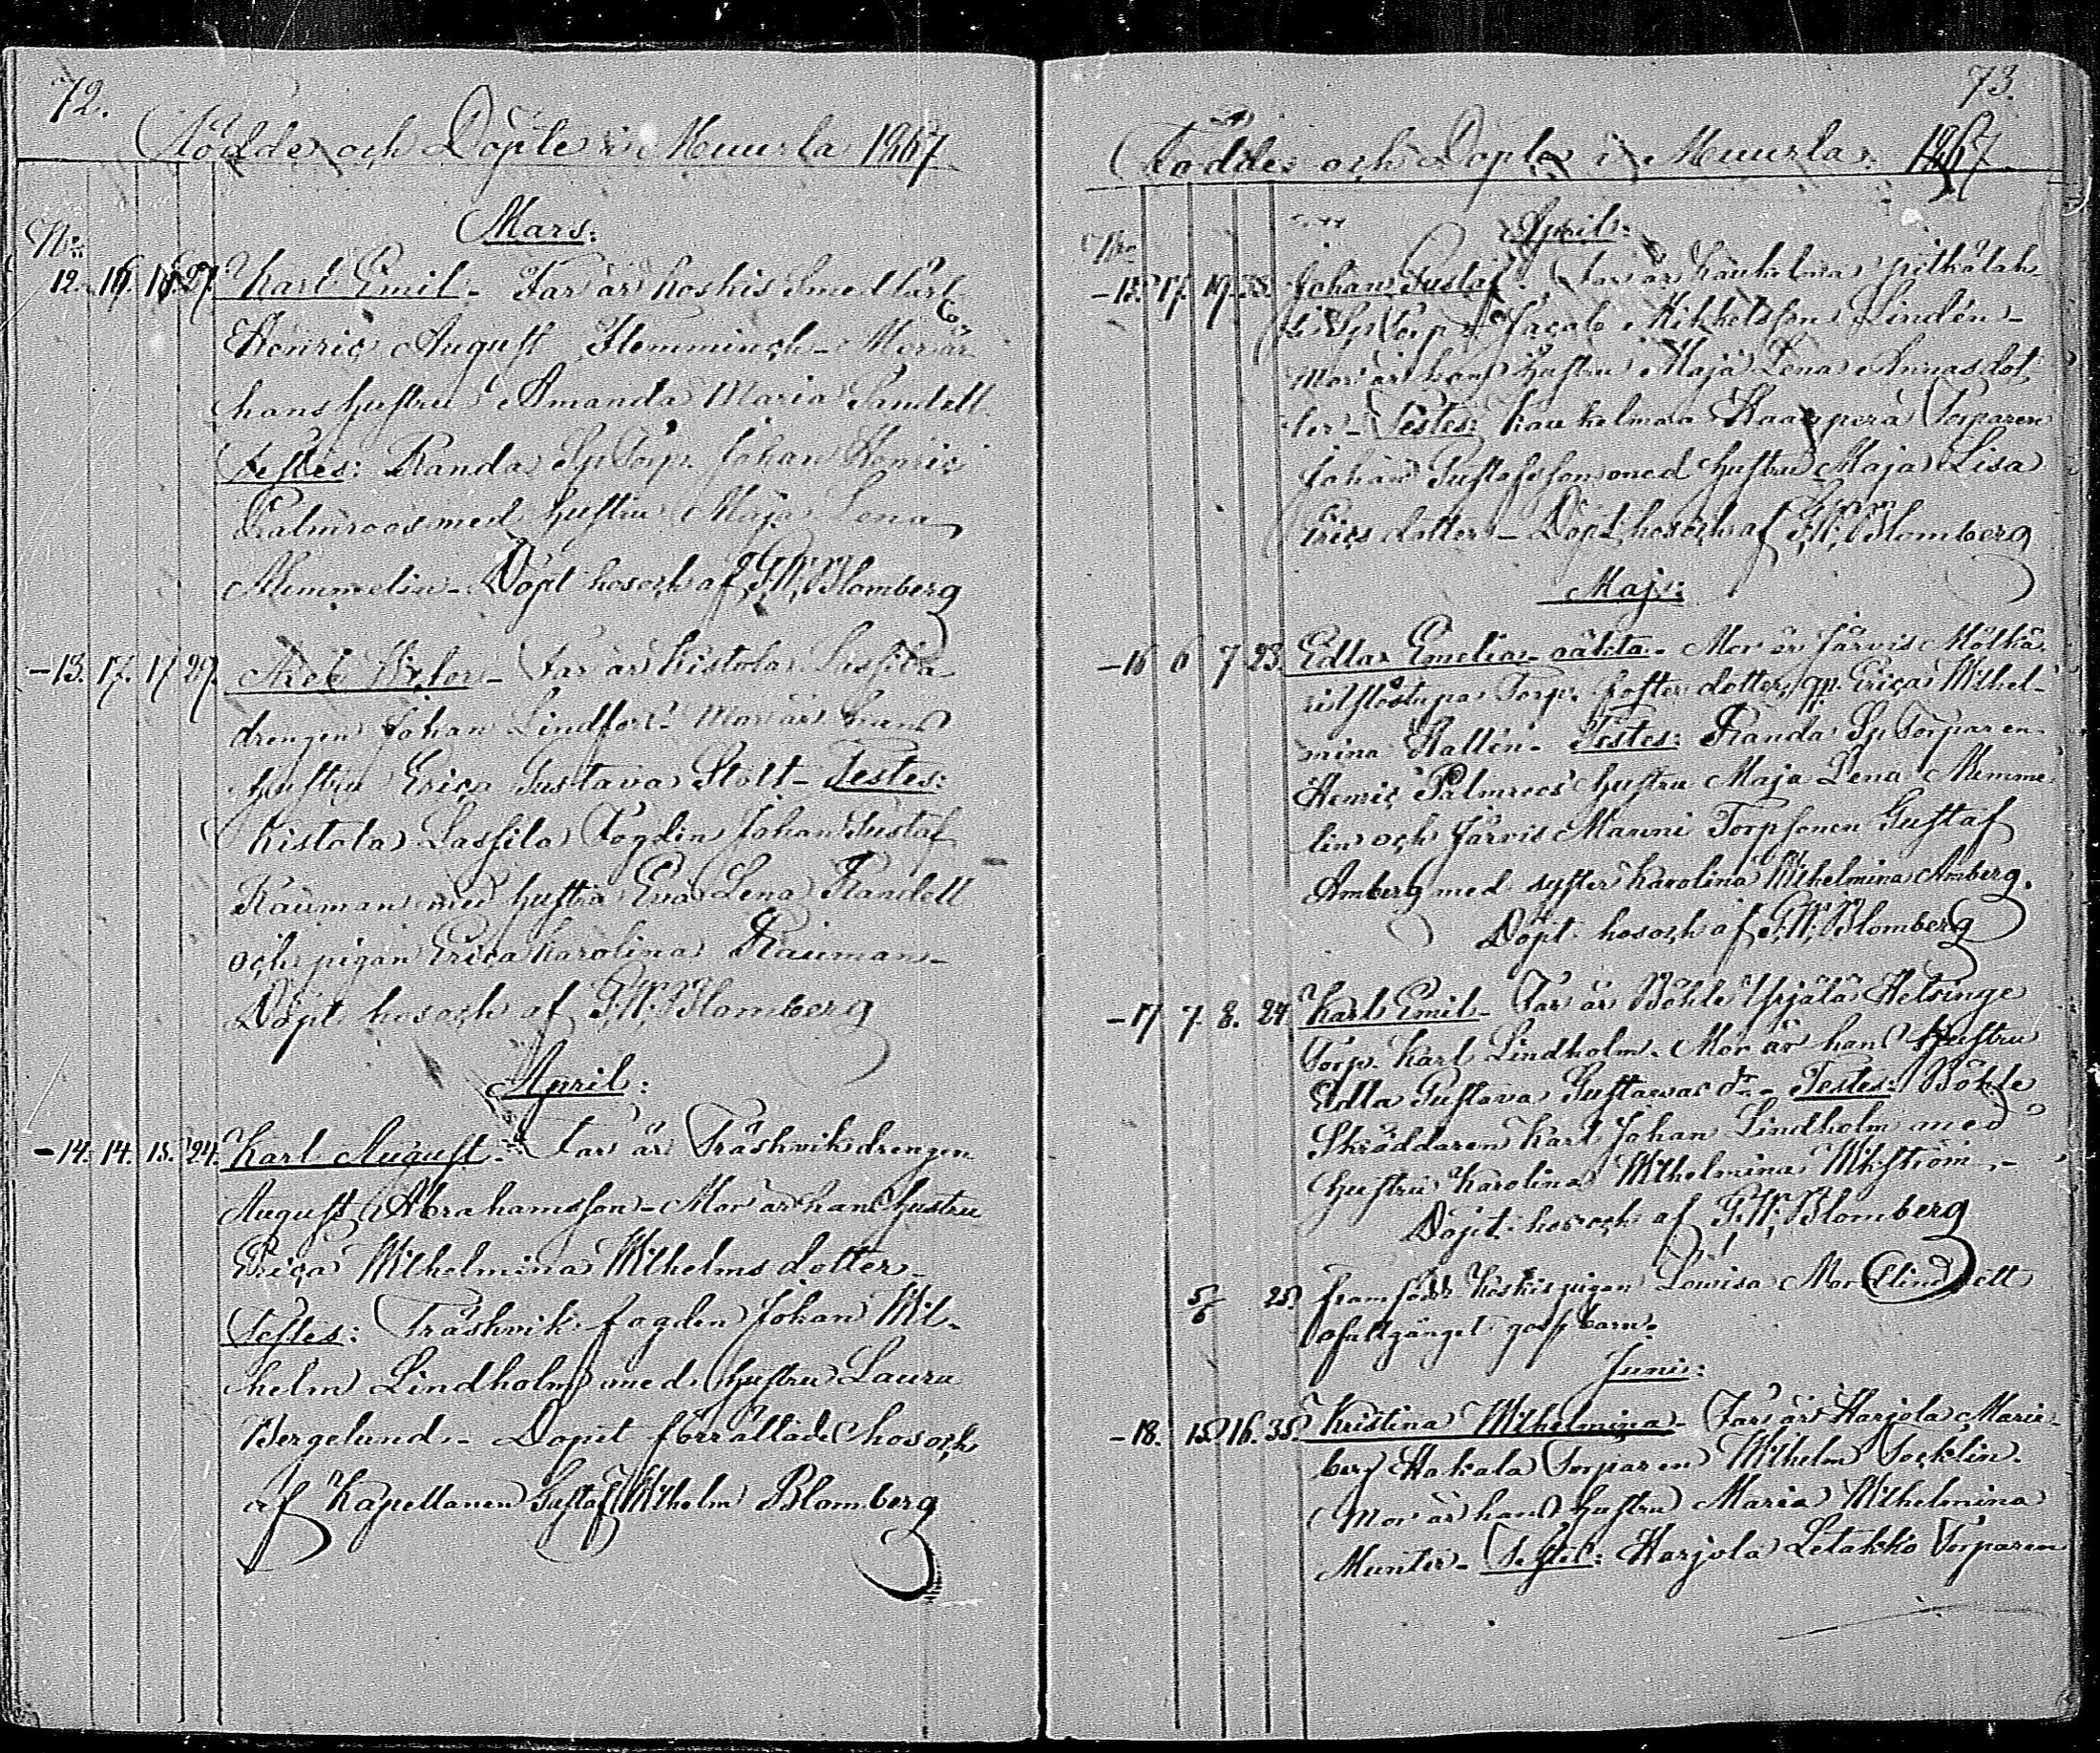 72.
Födde och Döpte i Muurla 1867
Mars:
No
12. 16. 16. 27. Karl Emil - Far är Koskis Smed Carl
Henric August Flemminch - Mor är
hans hustru Amanda Maria Sandell.
Testes: Randa Sp Torp. Johan Henric
Palmroos med hustru Maja Lena
Memmelin - Döpt hos och af G. W. Blomberg
- 13. 17. 17. 29. Axel Victor - Far är Kistola Lassila
drengen Johan Lindfors - Mor är hans
hustru Erica Gustava Stolt - Testes:
Kistola Lassila Fogdin Johan Gustaf
Rauman med hustru Eva Lena Randell
och pigan Erica Karolina Rauman -
Döpt hos och af G. W. Blomberg
April:
- 14. 14. 15. 24. Karl August: Far är Träskvik drengen
August Abrahamsson - Mor är hans hustru
Erica Wilhelmina Wilhelmsdotter -
Testes: Träskvik fogden Johan Wil-
helm Lindholm med hustru Laura
Bergelund - Dopet förrättade hos och
af Kapellanen Gustaf Wilhelm Blomberg
73.
Födde och Döpte i Muurla 1867
April:
No
- 15. 17. 19. Johan Gustaf: Far är Kaukelmaa
Sp Torp. Jacob Mikkelsson Lindén -
Mor är hans hustru Maja Lena Annasdot-
ter - Testes: Kaukelmaa Haanperä Torparen
Johan Gustafsson med hustru Maja Lisa
Ericsdotter - Döpt hos och af G. W. Blomberg
Maj:
- 16 6 7 23. Edla Emelia - oäkta - Mor är Järvis Mölkä
Torp. foster dotter, qp. Erica Wilhel-
mina Hallén - Testes: Randa Sp Torparen
Henric Palmroos hustru Maja Lena Memme-
lin och Järvis Manni Torpsonen Gustaf
Amberg med syster Karolina Wilhelmina Amberg.
Döpt hos och af G. W. Blomberg
- 17 7. 8. 24. Karl Emil - Far är Böhle Yrjälä Helsinge
Torp. Karl Lindholm. Mor är hans hustru
Edla Gustava Gustavas dr - Testes: Böhle
Skräddaren Karl Johan Lindholm med
hustru Karolina Wilhelmina Wikström -
Döpt hos och af G. W. Blomberg
5/6 25 framfödde Koskis pigan Lovisa Mor Elin ett
ofullgånget gosse barn.
Juni:
- 18. 15. 16. 35. Kristina Wilhelmina - Far är Harjola Marie-
berg Hakala Torparen Wilhelm Socklin.
Mor är hans hustru Maria Wilhelmina
Munter - Testes: Harjola Letakko Torparen